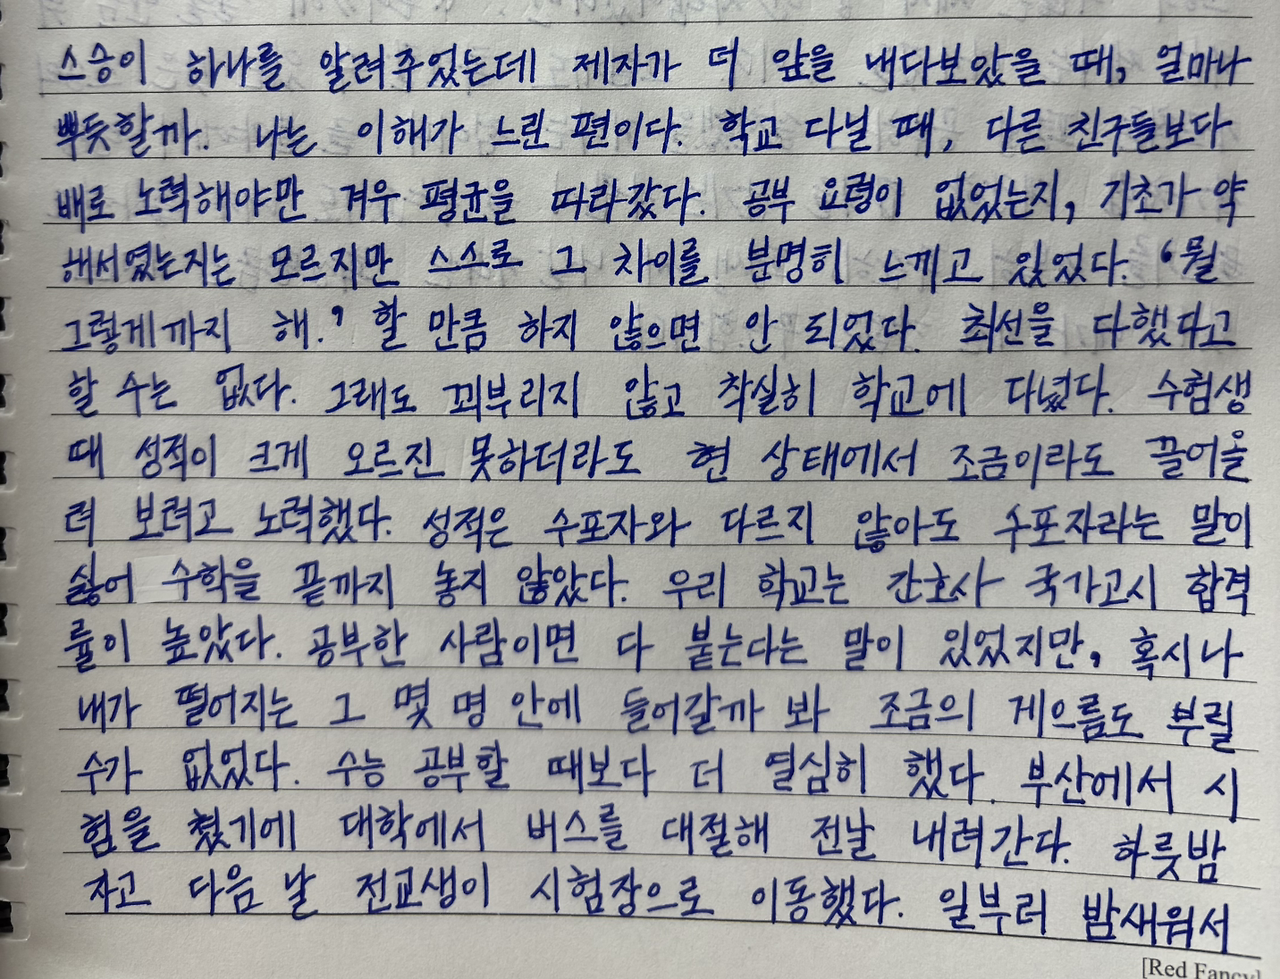 스승이 하나를 알려주었는데 제자가 더 앞을 내다보았을 때, 얼마나
뿌듯할까. 나는 이해가 느린 편이다. 학교 다닐 때, 다른 친구들보다
배로 노력해야만 겨우 평균을 따라갔다. 공부 요령이 없었는지, 기초가 약
해서였는지는 모르지만 스스로 그 차이를 분명히 느끼고 있었다. ‘뭘
그렇게까지 해.’ 할 만큼 하지 않으면 안 되었다. 최선을 다했다고
할 수는 없다. 그래도 꾀부리지 않고 착실히 학교에 다녔다. 수험생
때 성적이 크게 오르진 못하더라도 현 상태에서 조금이라도 끌어올
려 보려고 노력했다. 성적은 수포자와 다르지 않아도 수포자라는 말이
싫어 수학을 끝까지 놓지 않았다. 우리 학교는 간호사 국가고시 합격
률이 높았다. 공부한 사람이면 다 붙는다는 말이 있었지만, 혹시나
내가 떨어지는 그 몇 명 안에 들어갈까 봐 조금의 게으름도 부릴
수가 없었다. 수능 공부할 때보다 더 열심히 했다. 부산에서 시
험을 쳤기에 대학에서 버스를 대절해 전날 내려간다. 하룻밤
자고 다음 날 전교생이 시험장으로 이동했다. 일부러 밤새워서
[Red Fancy]